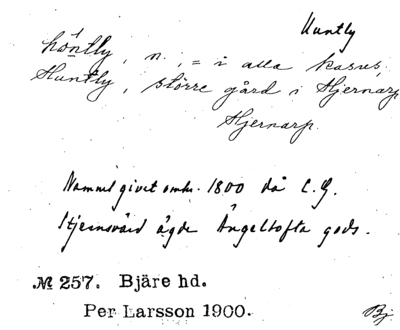 Huntly
höntly, n., = i alla kasus,
Huntly, större gård i Hjernarp
Hjernarp.
Namnet givet omkr. 1800 då C. G.
Stjernsvärd ägde Ängeltofta gods.
№ 257. Bjäre hd.
Per Larsson 1900.
Bj